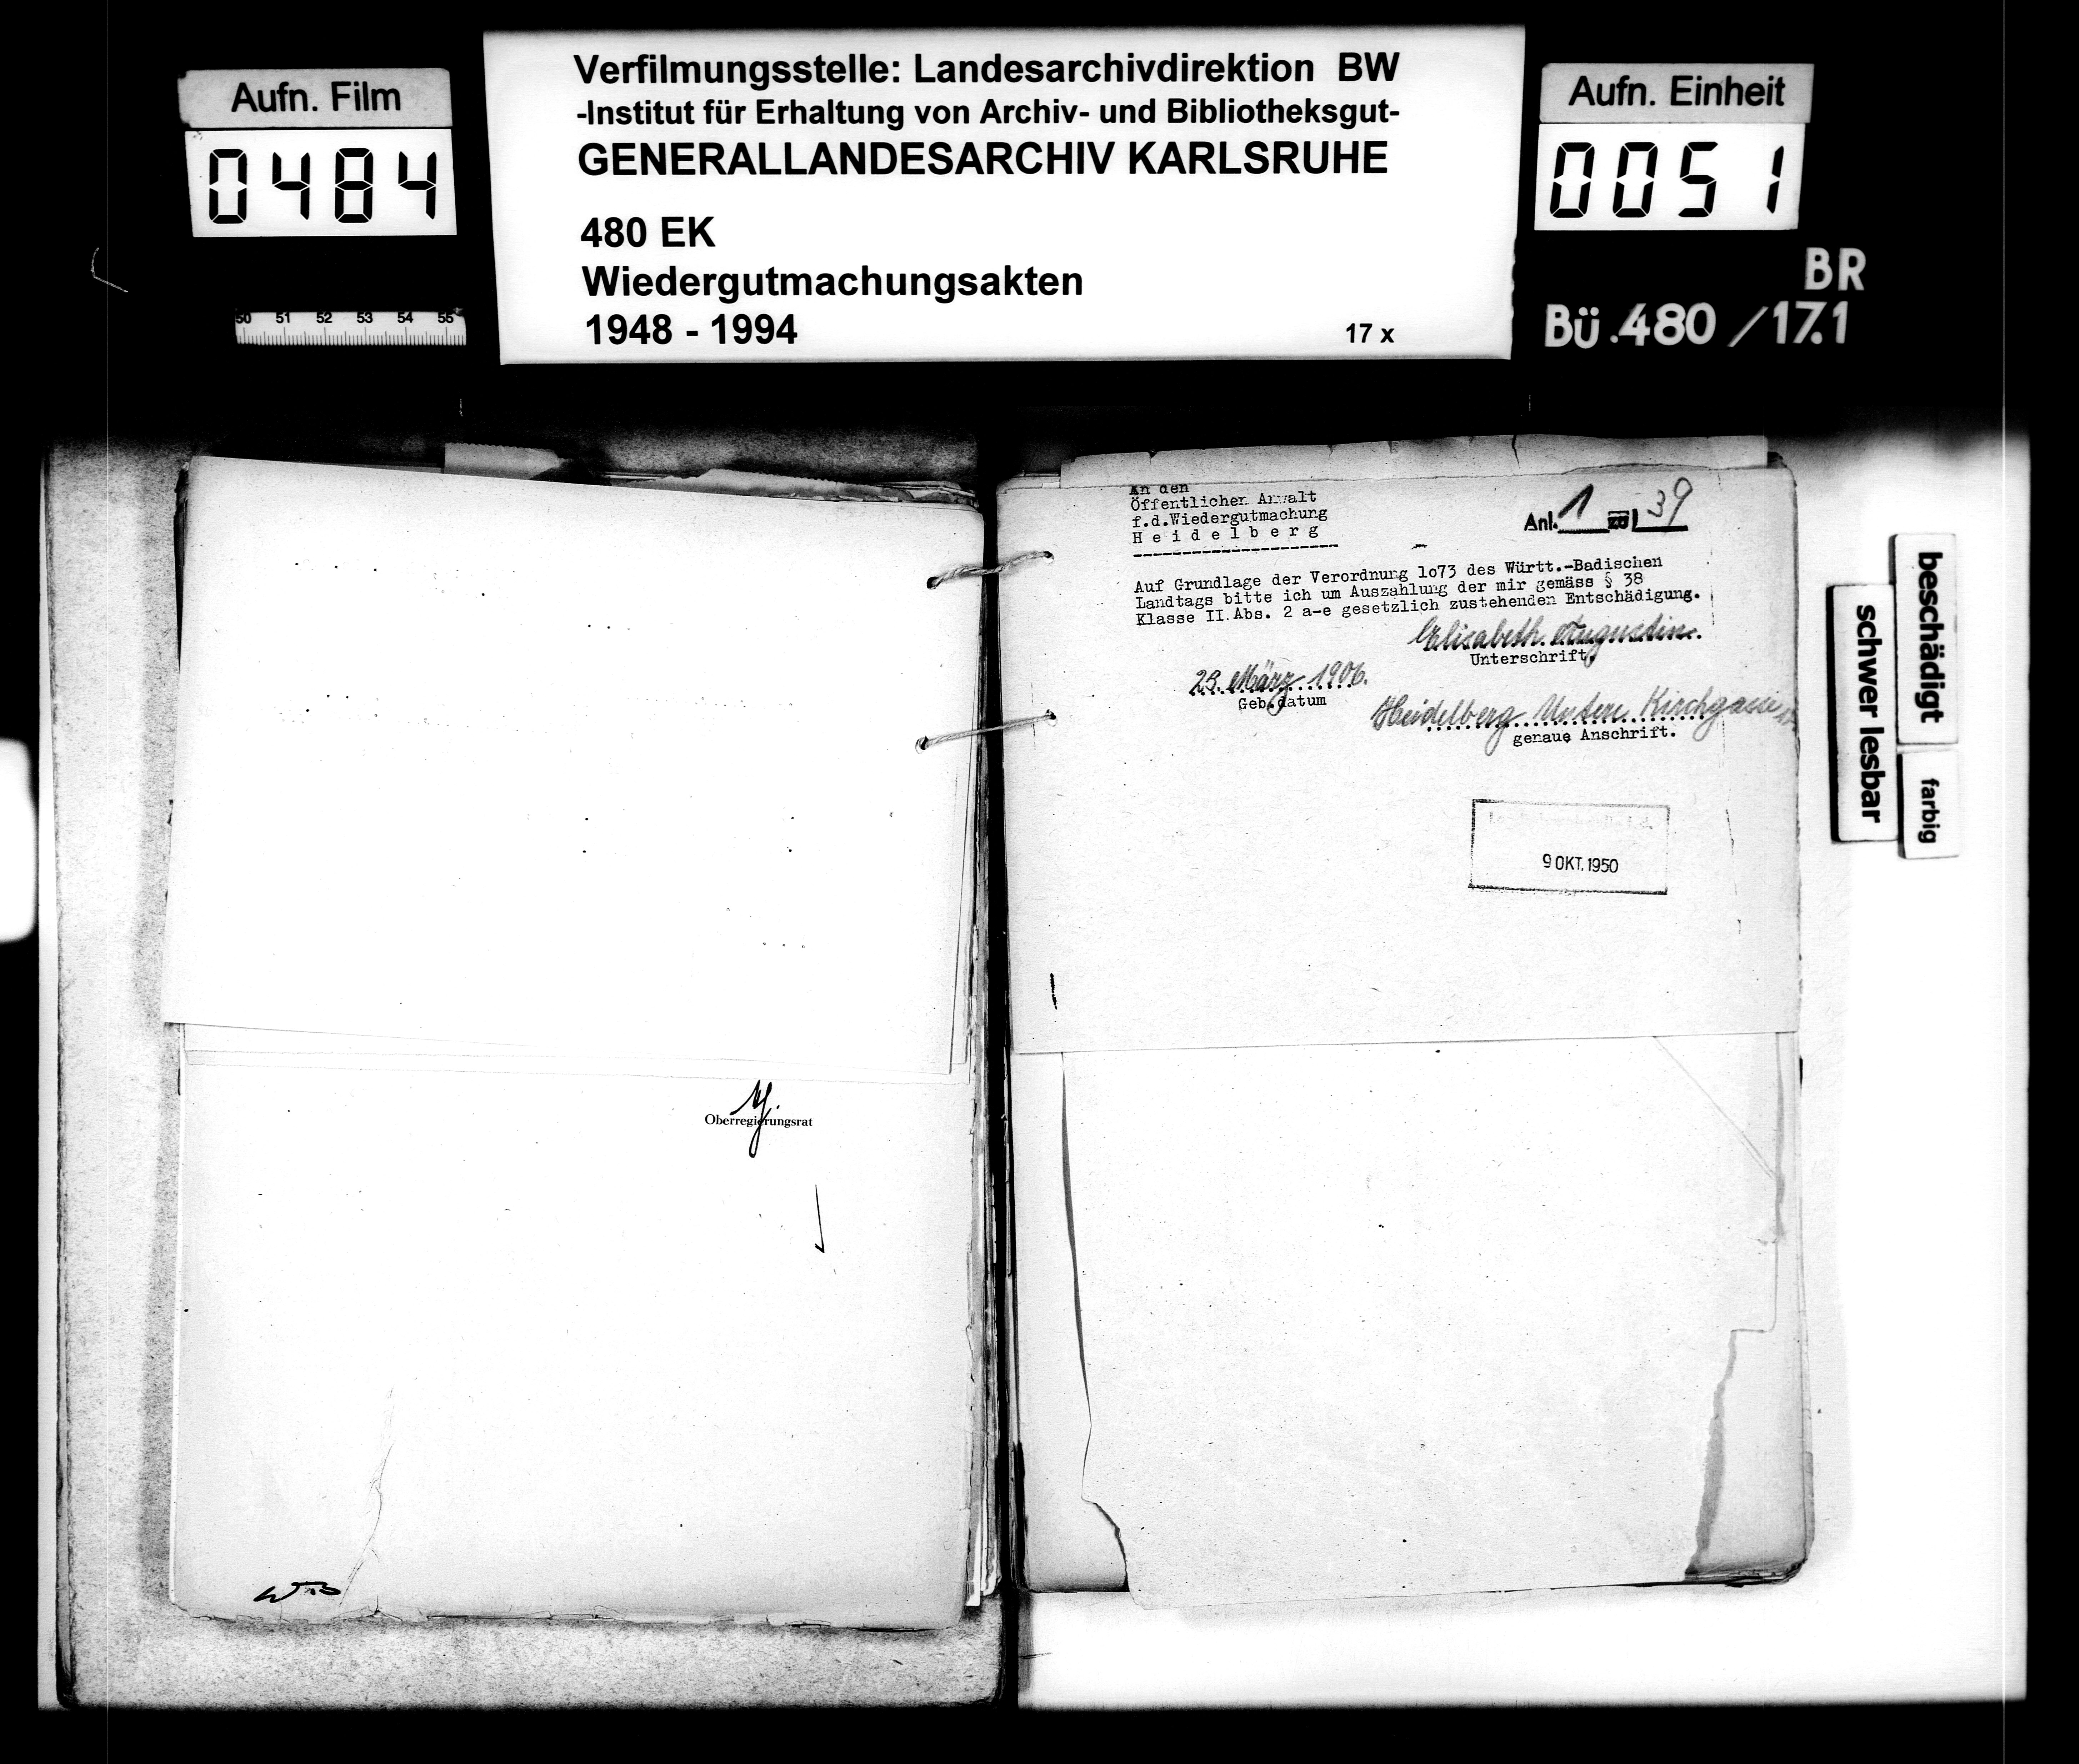 Aufn. Film
0484
Verfilmungsstelle: Landesarchivdirektion BW
-Institut für Erhaltung von Archiv- und Bibliotheksgut-
GENERALLANDESARCHIV KARLSRUHE
480 EK
Wiedergutmachungsakten
1948 - 1994
17 x
Aufn. Einheit
0051
BR
Bü.480/17.1
50 51 52 53 54 55
beschädigt
schwer lesbar
farbig
Oberregierungsrat
An den
Öffentlichen Anwalt
f.d.Wiedergutmachung
H e i d e l b e r g
Anl. 1 zu 39
Auf Grundlage der Verordnung 1o73 des Württ.-Badischen
Landtags bitte ich um Auszahlung der mir gemäss § 38
Klasse II.Abs. 2 a-e gesetzlich zustehenden Entschädigung.
Elisabeth Augustin.
Unterschrift.
März 1906.
Geb.datum
Heidelberg Untere Kirchgasse
genaue Anschrift.
9 OKT. 1950